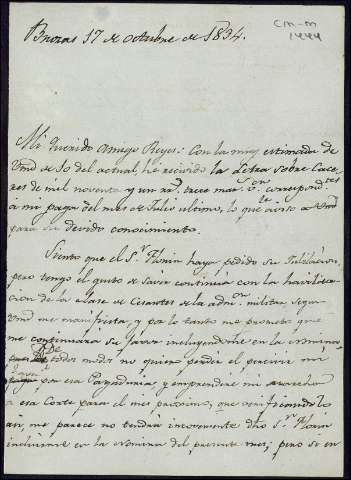 CM-M
1444
Brozas 17 de octubre de 1834.
Mi querido Amigo Reyes: Con la muy estimada de
Vmd de 10 del actual, he recivido la Letra sobre Cace
res de mil noventa y un rs. trece mars. vn. correspondtes
á mi paga del mes de Julio ultimo, lo que aviso a Vmd
para su devido conocimiento.
Siento que el Sr. haya pedido su Jubilacion,
pero tengo el gusto de saver continúa con la havilita-
cion de la clase de Cesantes de la admon. militar segun
Vmd me manifiesta, y por lo tanto me prometo que
me continuará su favor incluyendome en la nomina
todos modos no quiero perder el percivir mi
por esa Pagaduria y emprendere mi
a esa Corte para el mes proximo, que verificandolo
asi, me parece no tendrá inconveniente dho Sr.
incluirme en la nomina del presente mes; pero si en